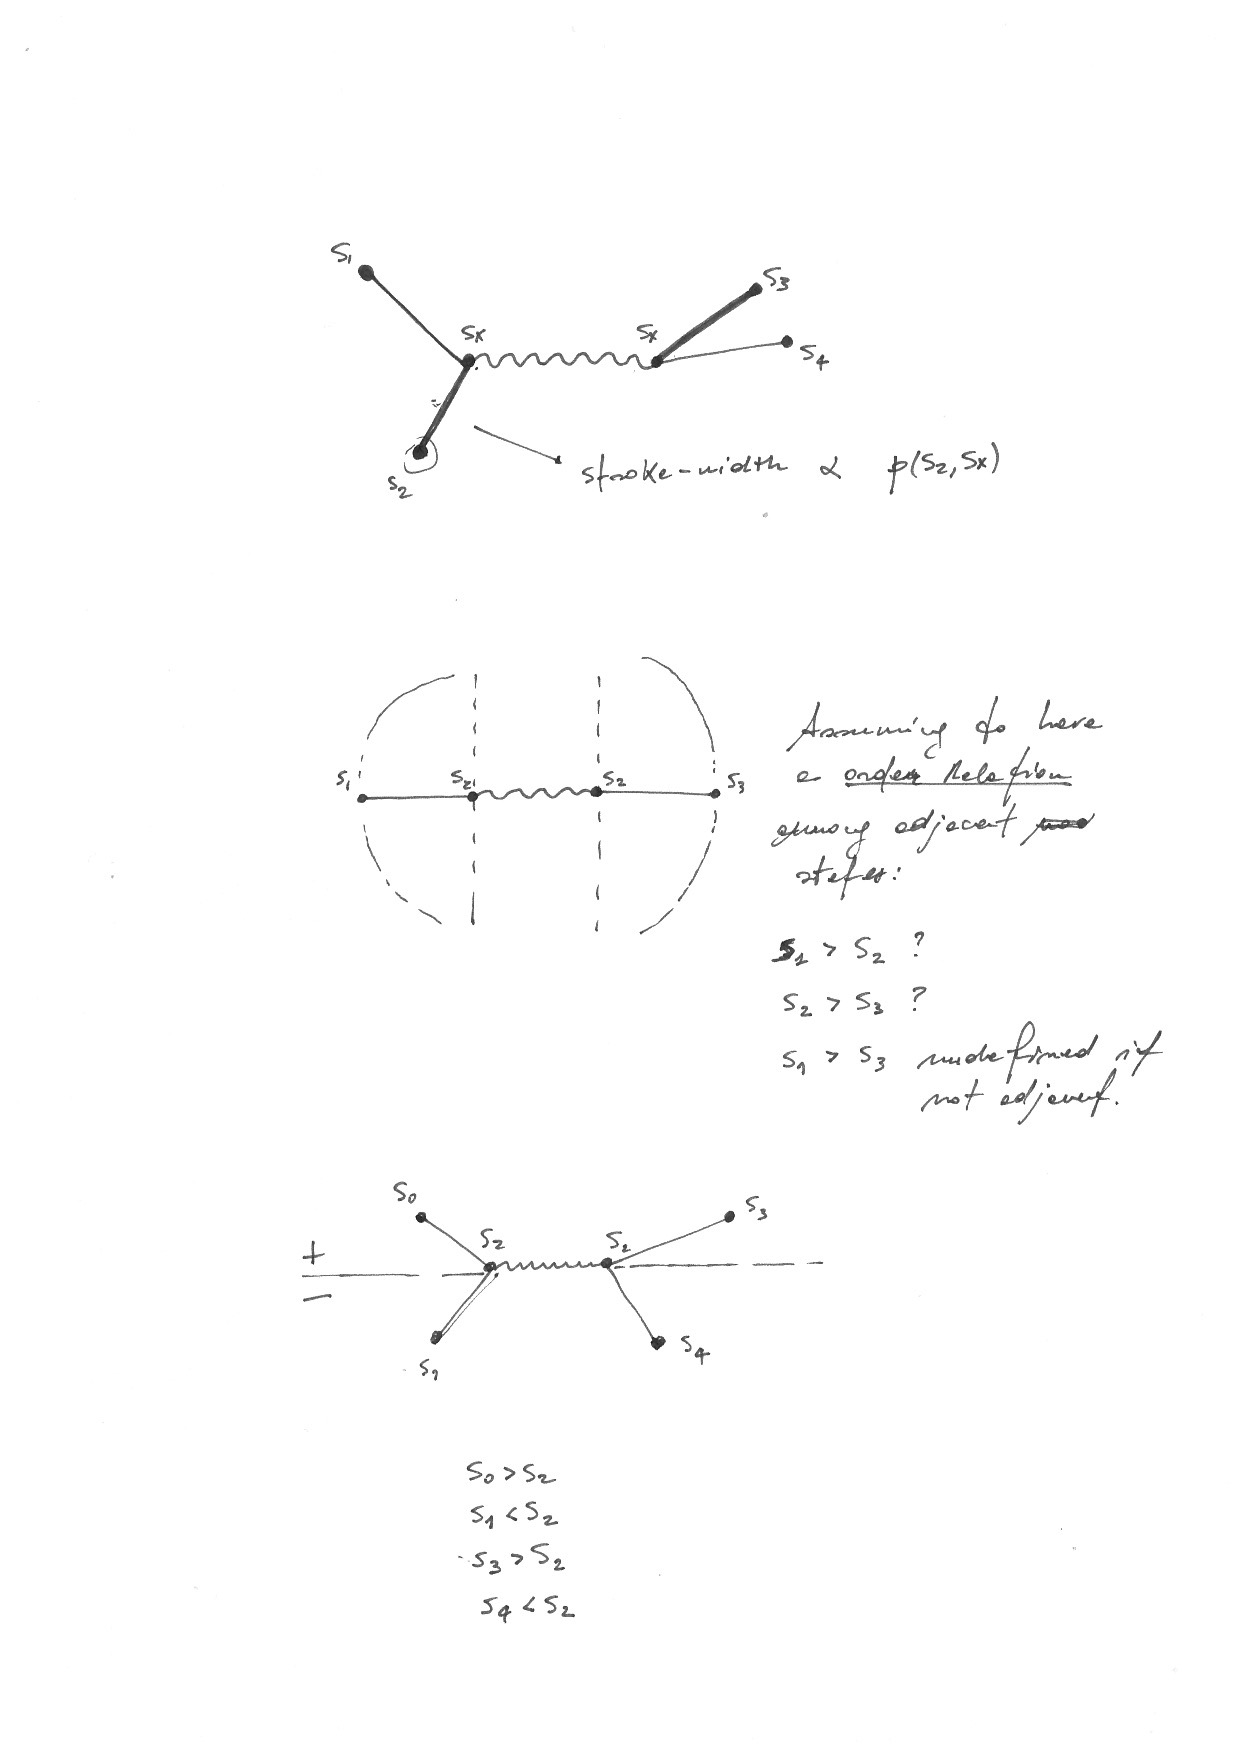 S1
S3
Sx
Sx
S4
S2
stroke-width ∝ p(S2, Sx)
S1
S2
S2
S3
Assuming to have
a order relation
among adjacent
states:
S1 > S2 ?
S2 > S3 ?
S1 > S3 undefined if
not adjacent.
S0
S3
S2
S2
+
−
S1
S4
S0 > S2
S1 < S2
S3 > S2
S4 < S2